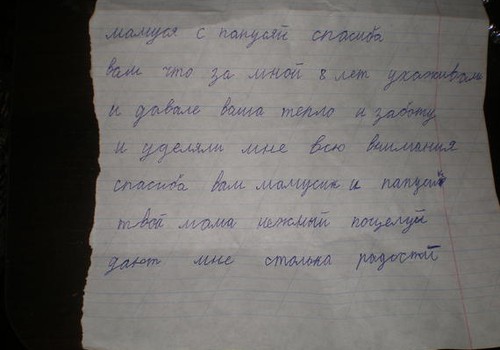 мамуся с папусяй спасиба
вам что за мной 8 лет ухаживали
и давале ваша тепло и заботу
и уделяли мне всю внимания
спасиба вам мамусик и папусик
твой мама нежный поцелуй
дают мне столька радостей